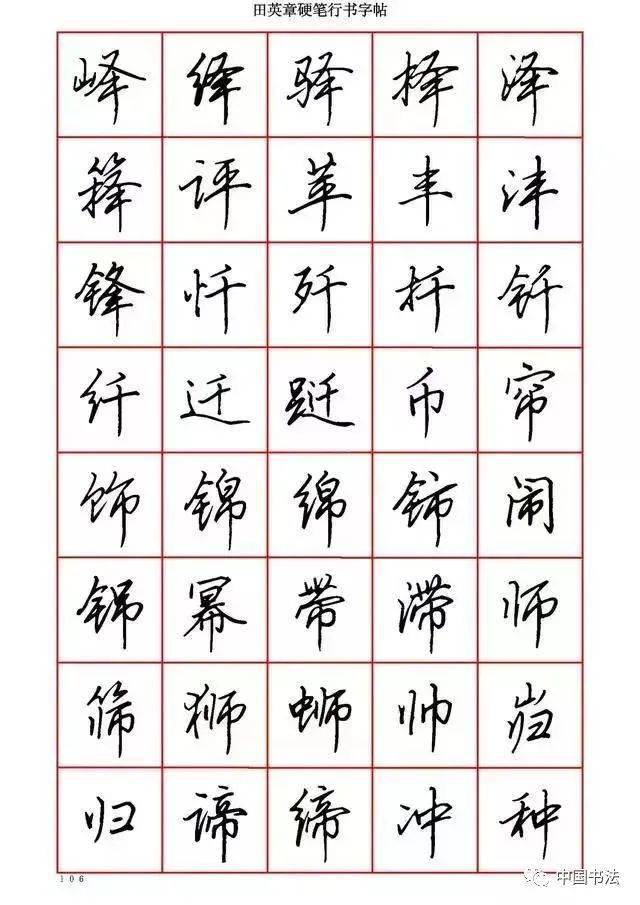 田英章硬笔行书字帖
峄 绎 驿 择 泽
箨 评 苹 丰 沣
锋 忏 歼 扦 钎
纤 迁 跹 币 帘
饰 锦 绵 铈 闹
锦 幂 带 滞 师
筛 狮 蛳 帅 岿
归 谛 缔 冲 种
106
中国书法